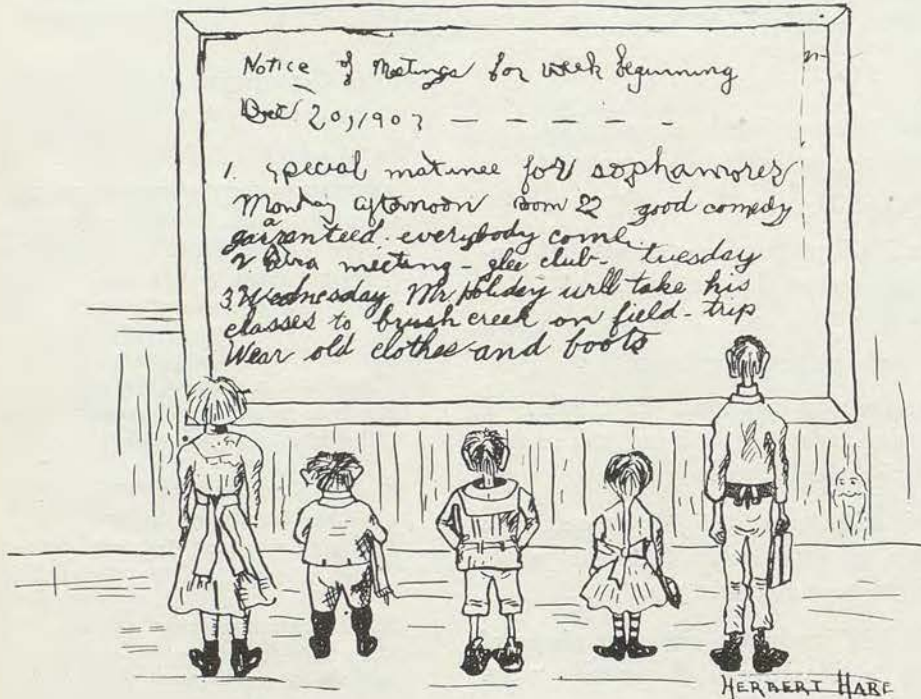 Notice of Meetings for week beginning
Oct 20, 1903
1. special matinee for sophamorez
Monday afternoon room 22 good comedy
garranteed. everybody come.
2. meeting - glee club - tuesday
3. Wednesday Mr. Holiday will take his
classes to brush creek on field-trip
Wear old clothes and boots
HERBERT HARE